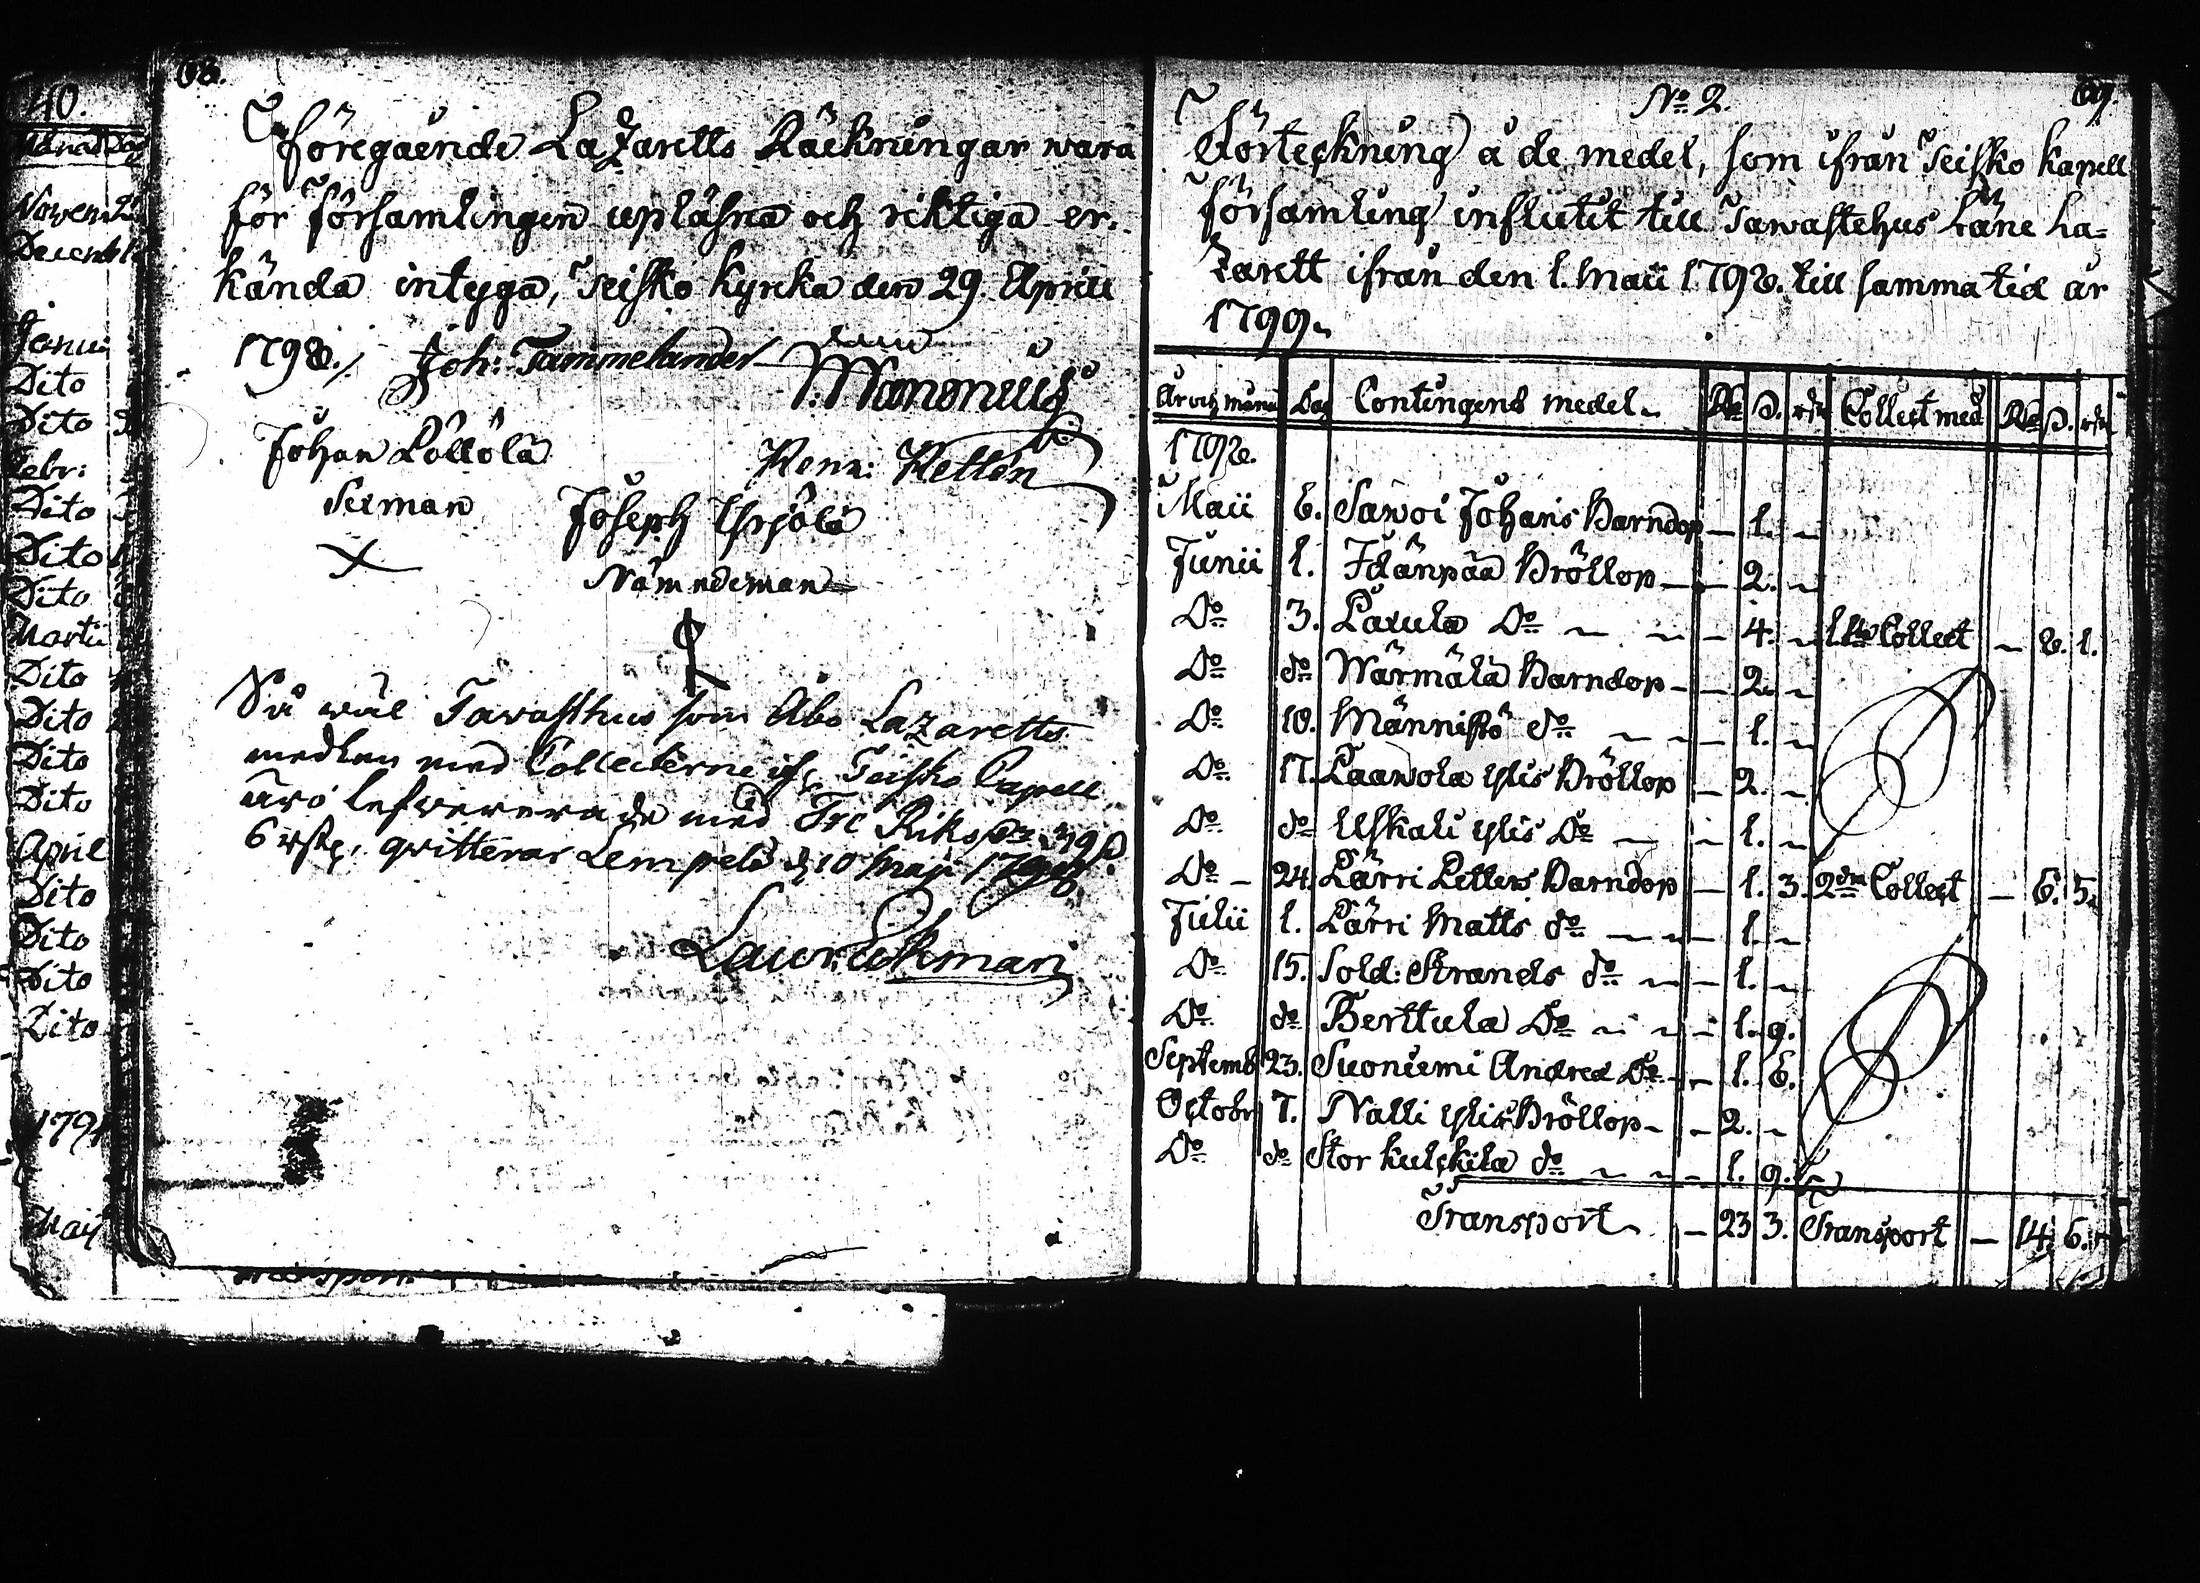 40.
Månad Dag
Novem
Decemb
Janu
Dito
Dito
Febr:
Dito
Dito
Dito
Martii
Dito
Dito
Dito
Dito
April
Dito
Dito
Dito
Dito
1791
Maij
68.
Föregående Lazaretts Räckningar wara
för Församlingen upläsna och riktiga er-
kända intyga, Teisko Kyrcka den 29. Aprill
1798./. Joh: Tammelander
Mononius
Johan Pöllölä
Henr: Kellén
Sexman
Joseph Yrjölä
Nämndeman
Så wäl Tavasthus som Åbo Lazaretts
medlen med Collecterne if. Teisko Capell
äro lefwererade med Tre Riksd. 39 s.
6 rst, qvitterar Lempelä d. 10 Maji 1798.
Laur. Ekman
No 2.
69.
Förteckning å de medel, som ifrån Teisko Kapell
Församling influtit till Tawastehus Läne La-
zarett ifrån den 1. Maii 1798. till samma tid år
1799.
År och månad Dag Contingens medel. Rd s. rst Collect med Rd s. rst
1798.
Maii 6. Sawoi Johans Barndop — 1. —
Junii 1. Idänpää Bröllop — 2. —
Do 3. Paxula Do — 4. — 1sta Collect — 8. 1.
Do do Wärmälä Barndop — 2. —
Do 10. Männistö do — 1. —
Do 17. Paawola ylis Bröllop — 2. —
Do do Uskali ylis Do — 1. —
Do 24. Pärri Petters Barndop — 1. 3. 2dra Collect — 6. 5.
Julii 1. Pärri Matts do — 1. —
Do 15. Sold: Strands do — 1. —
Do do Berttula Do — 1. 9.
Septemb 23. Suoniemi Andreæ Do — 1. 6.
Octobr 7. Nalli ylis Bröllop — 2. —
Do do Stor Kulckila do — 1. 9.
Transport — 23 3. Transport — 14. 6.